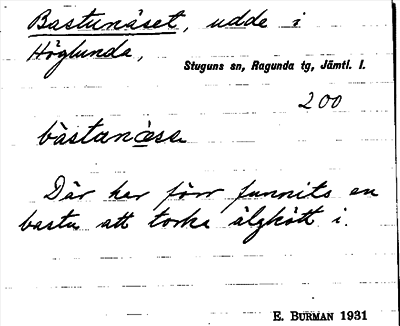 Bastunäset, udde i
Höglunda,
Stuguns sn, Ragunda tg, Jämtl. l.
200
bàstanæsə
Där har förr funnits en
bastu att torka älgkött i.
E. BURMAN 1931